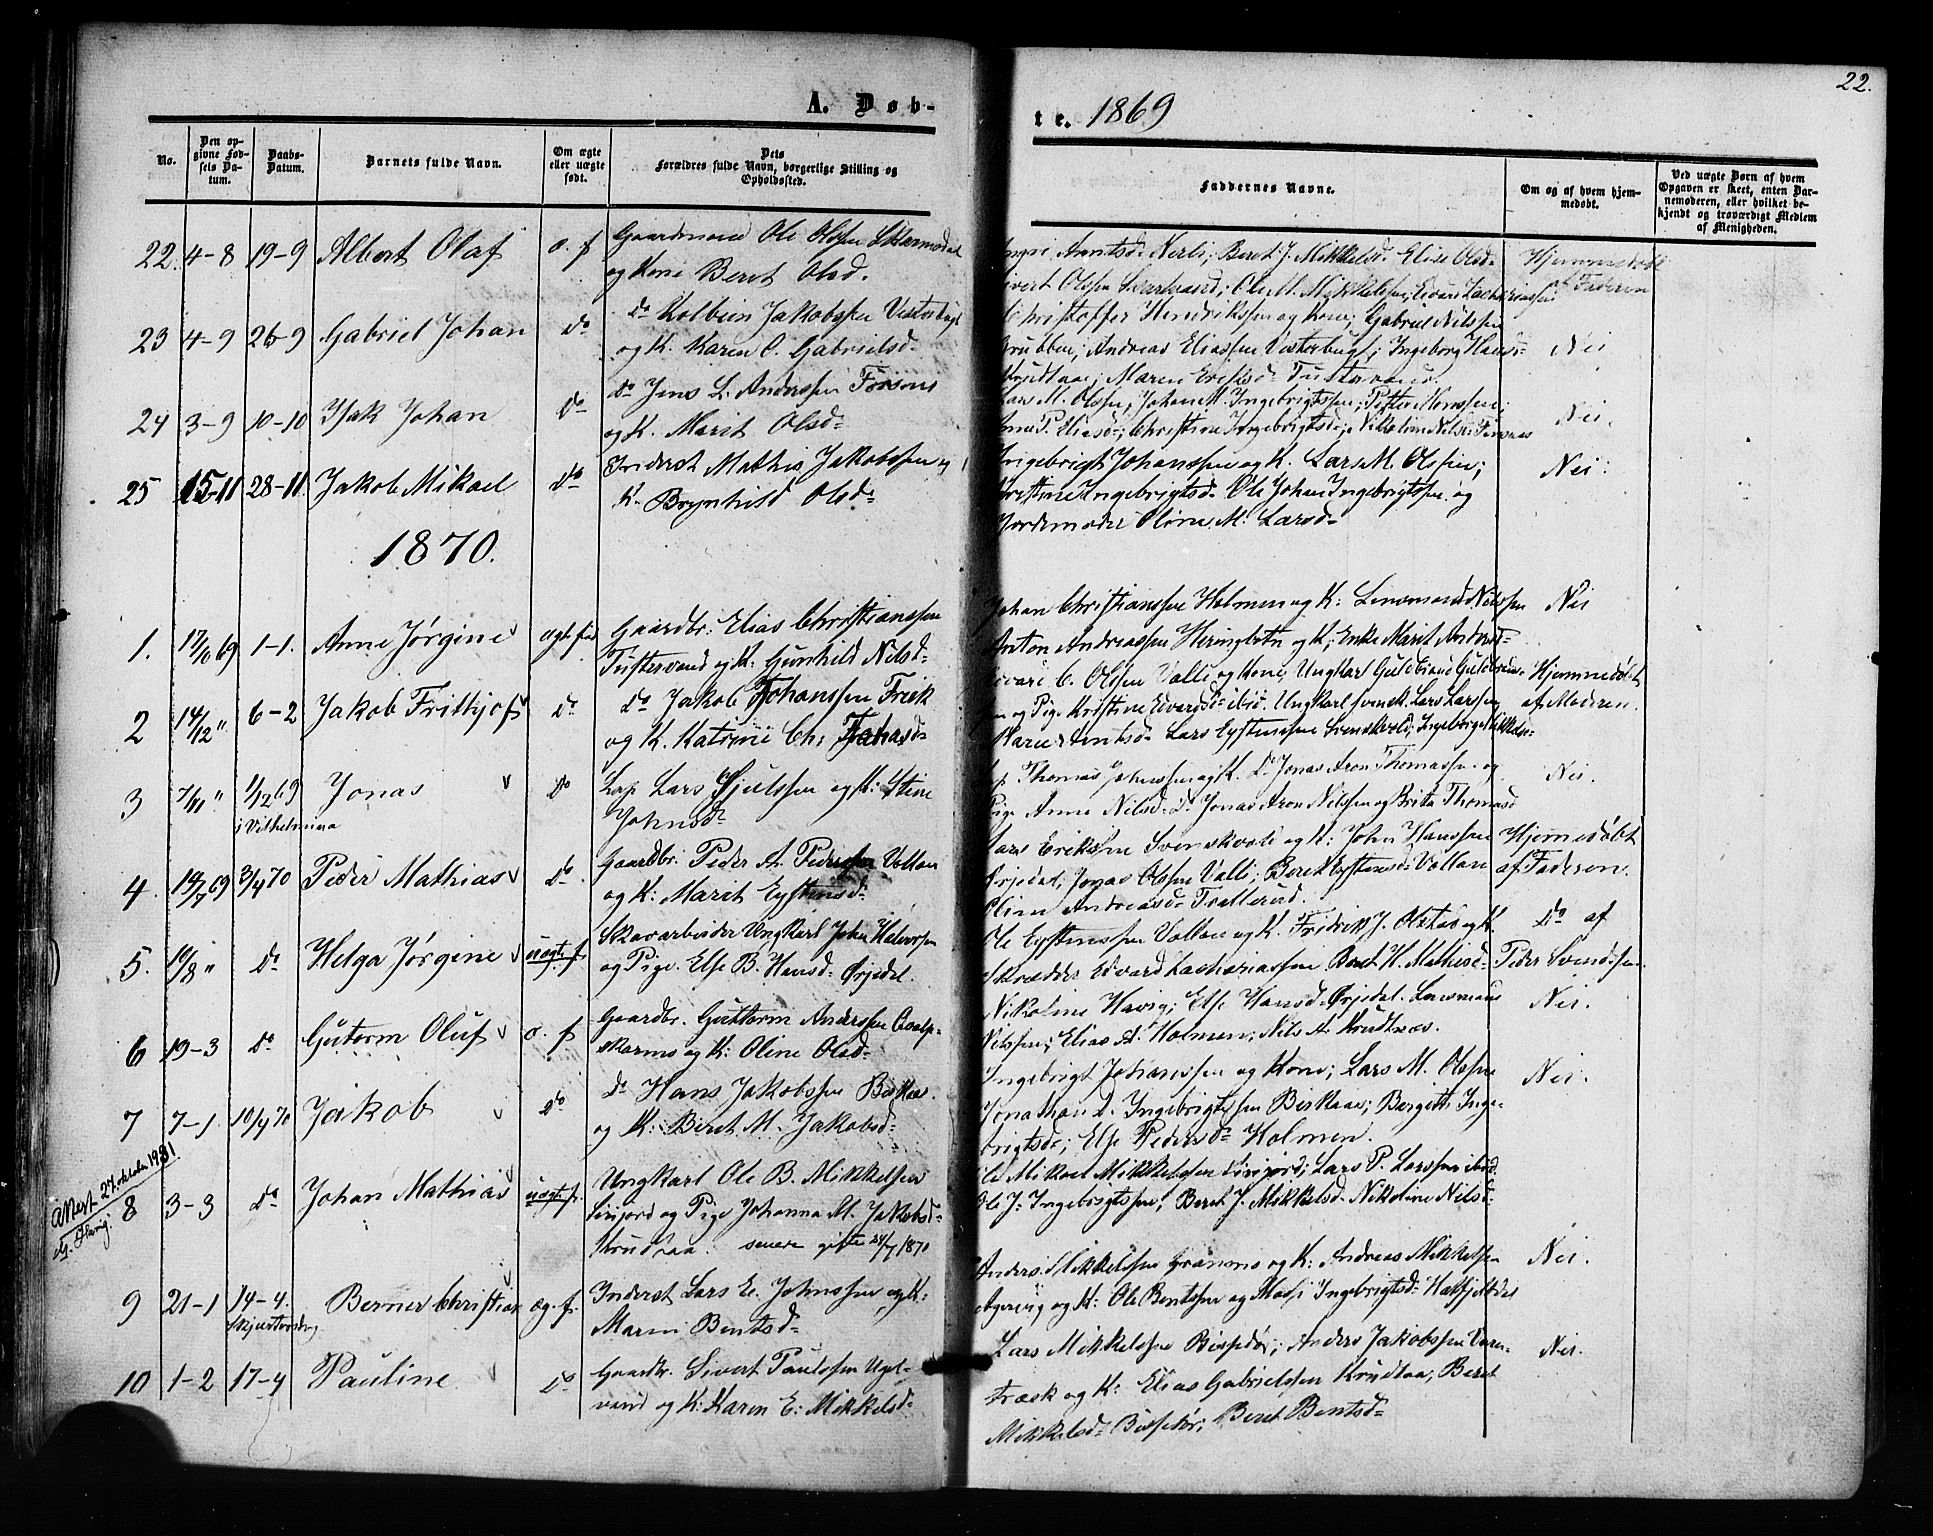 A. Døb-
te. 1869
22.
No.
Den op-
givne Fød-
sels Da-
tum.
Daabs-
Datum.
Barnets fulde Navn.
Om ægte
eller uægte
født.
Dets
Forældres fulde Navn, borgerlige Stilling og
Opholdssted.
Faddernes Navne.
Om og af hvem hjem-
medøbt.
Ved uægte Børn af hvem
Opgaven er skeet, enten Bar-
nemoderen, eller hvilket be-
kjendt og troværdigt Medlem
af Menigheden.
22. 4-8 19-9 Albert Olaf
Gaardmand Ole Olsen
og Kone Beret Olsd.
Arntsd. Nerli; Beret J. Mikkelsd. Elise Olsd.
Olssen Ole M. Mikkelssen; Edvard Zachariassen
Hjemmedøbt
af Faderen
23 4-9 26-9 Gabriel Johan do
do Kolbein Jakobssen
og K. Karen O. Gabrielsd.
Christoffer Hendrikssen og Kone; Gabriel Nilssen
Grubben; Andreas Eliassen Vesterbugt; Ingeborg Hansd.
Krudtaae; Maren Eriksd. Tustervand.
Nei
24 3-9 10-10 Isak Johan do
do Jens L. Anderssen
og K. Marit Olsd.
Lars M. Olssen, Johan M. Ingebrigtssen; Petter Monssen;
Anne P. Eliasd.; Christine Ingebrigtsd.;
Nei.
25 15-11 28-11 Jakob Mikael do
Inderst Mathis Jakobssen og
K. Brynhild Olsd.
Ingebrigt Johanssen og K. Lars M. Olssen;
Kristine Ingebrigtsd. Ole Johan Ingebrigtssen og
Jordemoder Oline M. Larsd.
Nei.
1870.
1. 17/10 69 1-1. Anne Jørgine
Gaardbr. Elias Christianssen
Tustervand og K. Gunhild Nilsd.
Johan Christianssen Holmen og K: Lensmand Nilssen
Anton Andreassen Heringbotn og K; Enke Marit Andersd.
Nei
2 14/12 " 6-2 Jakob Frithjof do
do Jakob Johanssen
og K. Katrine Chr.
C. Olssen Valli og Kone, Ungkarl
og Pige Kristine Edvardsd. ibid. Ungkarl svensk. Lars Larssen
Arntsd. Lars Eystenssen Svenskvold;
Hjemmedøbt
af Moderen.
3 7/11 " 1/12 69 Jonas do
i Vilhelmina
Lap Lars og K: Stine
Johnsd.
Thomas Johnssen og K. do Jonas Aron Thomassen og
Pige Anne Nilsd. do Jonas Aron Nilssen og Brita Thomasd.
Nei.
4. 14/7 69 3/4 70 Peder Mathias do
Gaardbr. Peder A. Pederssen Vollan
og K: Maret Eystensd.
Lars Erikssen Svenskvold og K: John Hanssen
Ørjedal, Jonas Olssen Valli; Beret Eystensd. Vollan
Oline Andreasd.
Hjemmedøbt
af Faderen.
5. 10/8 " do Helga Jørgine uægte f.
Skovarbeider Ungkarl John Halvorsen
og Pige. Else B. Hansd. Ørjedal.
Ole Eystenssen Vollan og K. Fridrik J. Olstad og K.
Skrædder Edvard Zachariassen Beret H. Mathisd.
do af
Peder Svendsen.
6 19-3 do Gutorm Oluf
Gaardbr. Guttorm Anderssen
og K: Oline Olsd.
Nikoline Havig; Else Hansd. Ørjedal. Lensmand
Nilssen; Elias A. Holmen; Nils A. Krudtnæs.
Nei.
7 7-1 10/4 70 Jakob do
do Hans Jakobssen
og K: Beret M. Jakobsd.
Ingebrigt Johanssen og Kone; Lars M. Olssen
Jonathan D. Ingebrigtssen Birkaae; Bergitte Inge-
brigtsd.; Else Pedersd. Holmen.
Nei.
Attest 27. oktober 1931.
8 3-3 do Johan Mathias uægte f.
Ungkarl Ole B. Mikkelssen
og Pige Johanna M. Jakobsd.
Krudtaa. senere gifte 24/7 1870
Ole Mikael Mikkelssen Lars P. Larssen ibid.
Ole J. Ingebrigtssen; Beret J. Mikkelsd. Nikoline Nilsd.
9 21-1 14-4. Berner Christian æg. f.
Skjærtorsdag
Inderst Lars E. Johnssen og K:
Maren Bentsd.
Anders Mikkelssen Grannæs og K: Andreas Mikkelssen
og K: Ole Bentssen og Ingebrigtsd. Hatfjeldal
Nei.
10 1-2 17-4 Pauline do
Gaardbr. Sivert Paulssen Ugel-
vand og K: Karen E: Mikkelsd.
Lars Mikkelssen Anders Jakobssen
træsk og K: Elias Gabrielssen Krudtaa; Beret
Mikkelsd. Beret Bentsd.
Nei.